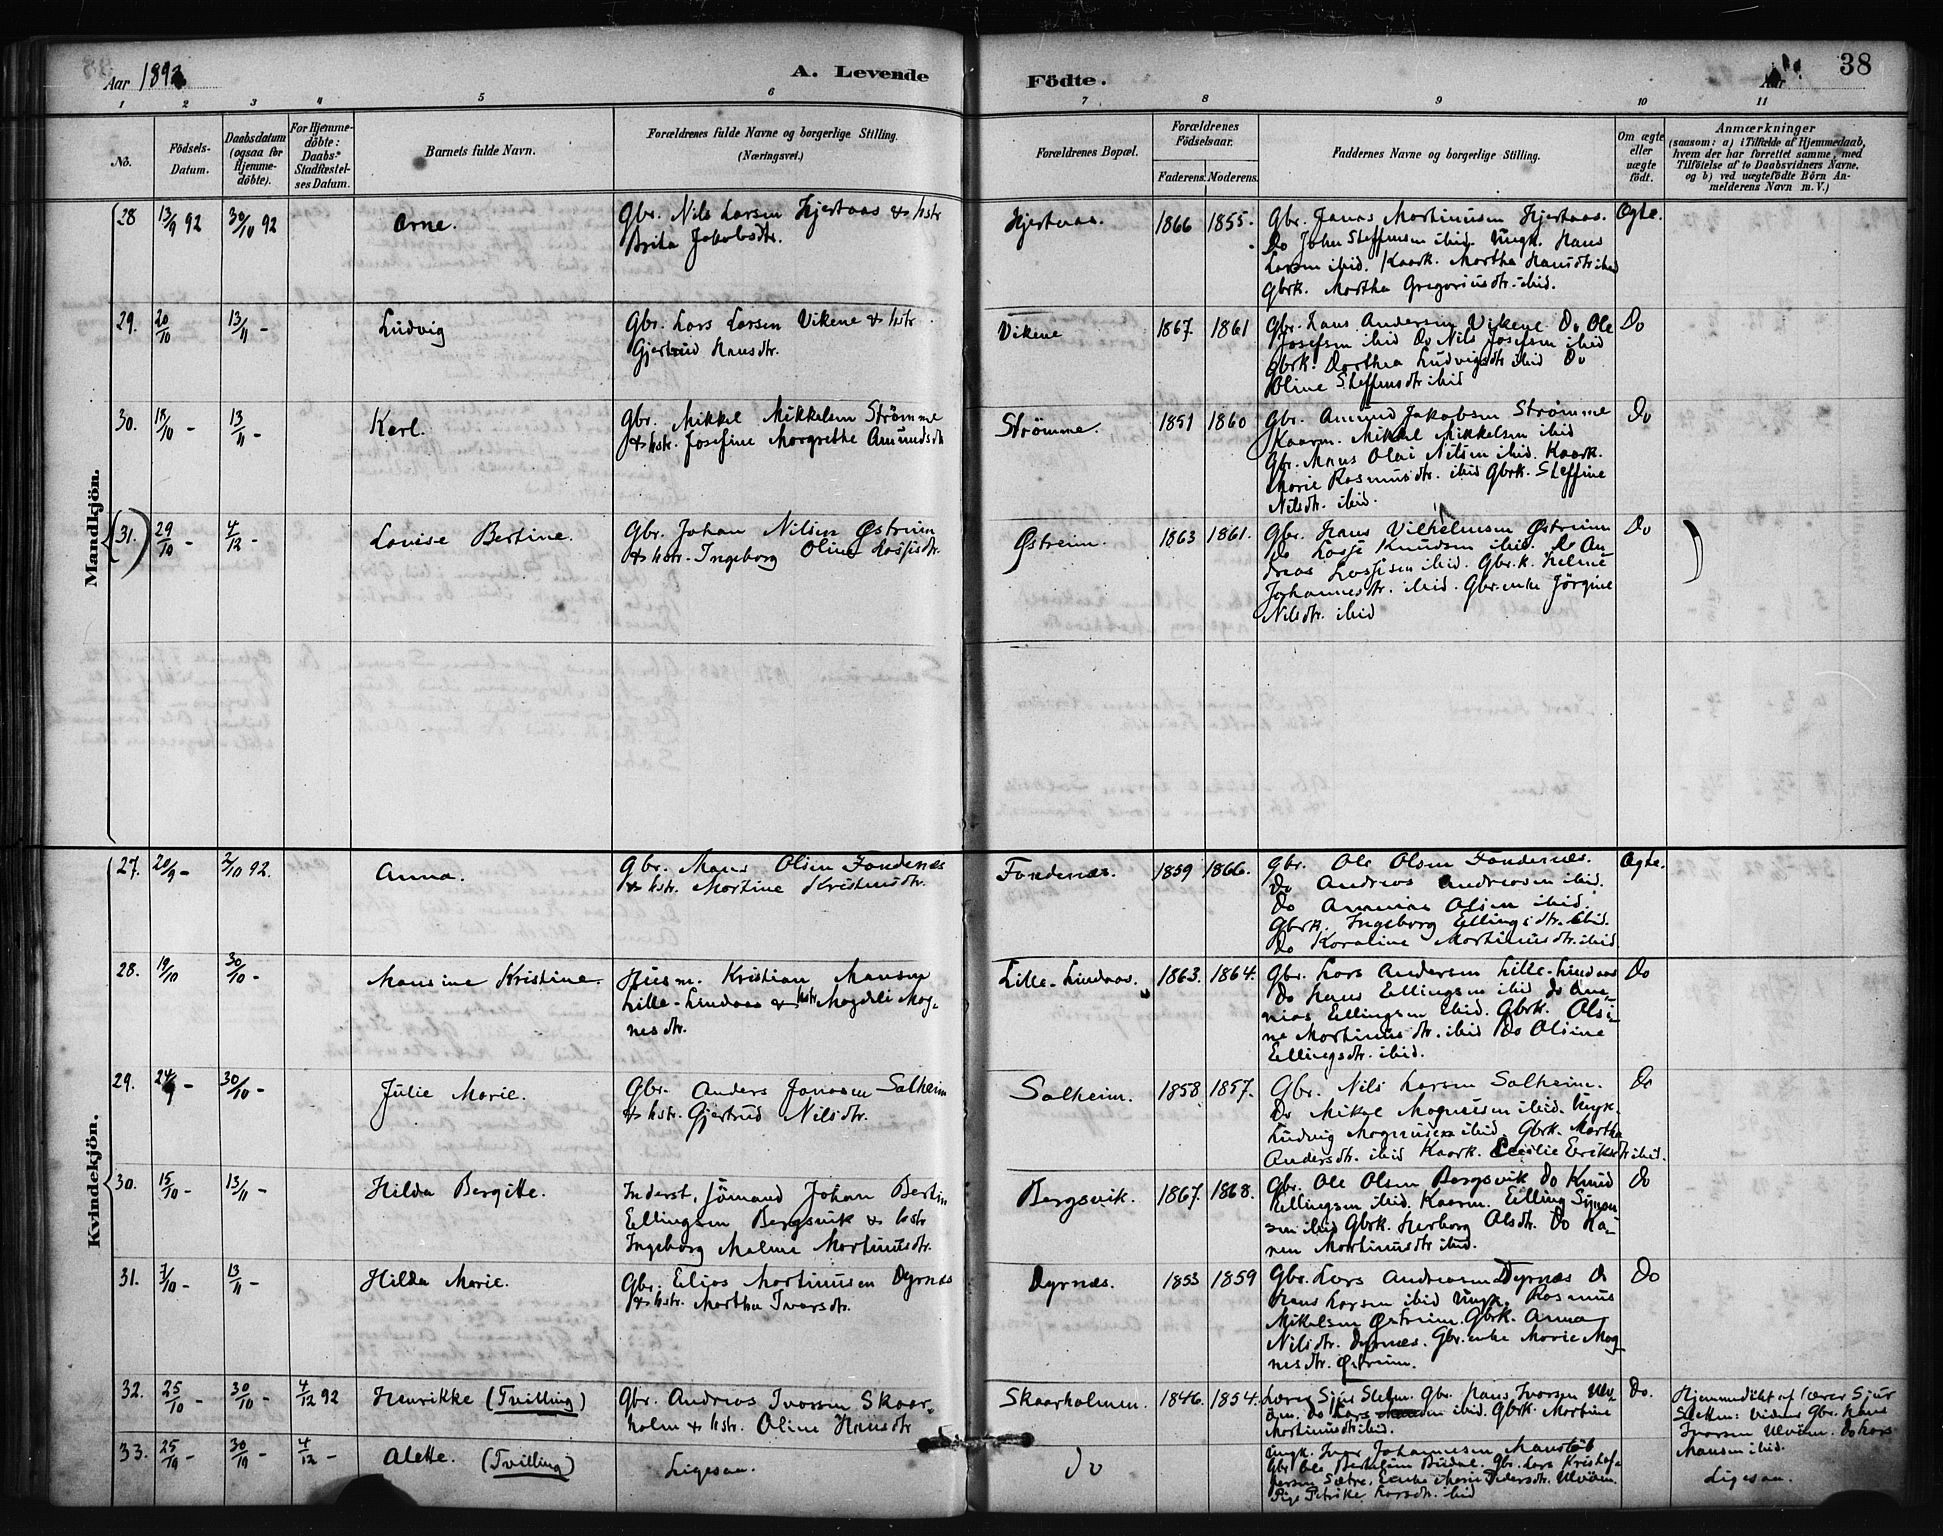 Aar 1892
A. Levende
Födte.
38
1 2 3 4 5 6 7 8 9 10 11
No.
Födsels-Datum.
Daabsdatum (ogsaa for Hjemmedöbte).
For Hjemmedöbte: Daabs-Stadfæstelses Datum.
Barnets fulde Navn.
Forældrenes fulde Navne og borgerlige Stilling.
(Næringsvei.)
Forældrenes Bopæl.
Forældrenes Födselsaar.
Faderens. Moderens.
Faddernes Navne og borgerlige Stilling.
Om ægte eller uægte födt.
Anmærkninger
(saasom: a) i Tilfælde af Hjemmedaab,
hvem der har forrettet samme, med
Tilföielse af to Daabsvidners Navne,
og b) ved uægtefödte Börn Anmelderens Navn m. V.)
Mandkjön.
28 13/9 92 30/10 92 Arne.
Gbr. Nils Larsen Hjertaas & hstr
Brita Jakobsdtr.
Hjertaas. 1866 1855.
Gbr. Jonas Martinussen Hjertaas.
Do John Steffensen ibid. Ungk. Hans
Larsen ibid. Kaark. Martha Hansdtr ibid
Gbrk. Martha Gregoriusdtr. ibid.
Ægte.
29. 20/10 13/11 - Ludvig
Gbr. Lars Larsen Vikene & hstr
Gjertrud Hansdtr.
Vikene 1867 1861
Gbr. Hans Andersen Vikene Do Ole
Josefsen ibid Do Nils Josefsen ibid
Gbrk. Dorthea Ludvigsdtr ibid Do
Oline Steffensdtr ibid
Do
30. 18/10 - 13/11 - Karl.
Gbr. Mikkel Mikkelsen Strømme
& hstr. Josefine Margrethe Amundsdtr
Strömme. 1851 1860
Gbr. Amund Jakobsen Strømme
Kaarm. Mikkel Mikkelsen ibid
Gbr. Mons Olai Nilsen ibid. Kaark.
Marie Rasmusdtr. ibid Gbrk. Steffine
Nilsdtr. ibid.
Do
(31.) 29/10 - 4/12 - Lovise Bertine.
Gbr. Johan Nilsen Østreim
& hstr. Ingeborg Oline Lassesdtr.
Østreim. 1863 1861.
Gbr. Hans Vilhelmsen Østreim
Do Lasse Knudsen ibid. Do An
dreas Lassesen ibid. Gbr.k. Helene
Johannesdtr. ibid. Gbr.enke Jörgine
Nilsdtr. ibid
Do
Kvindekjön.
27. 20/9 - 2/10 92. Anna.
Gbr. Mons Olsen Fondenæs
& hstr. Martine Kristensdtr.
Fondenæs. 1859 1866.
Gbr. Ole Olsen Fondenæs.
Do Andreas Andreasen ibid.
Do Ananias Olsen ibid.
Gbrk. Ingeborg Ellingsdtr. ibid.
Do Koraline Martinusdtr. ibid.
Ægte.
28. 19/10 30/10 - Monsine Kristine.
Husm. Kristian Monsen
Lille-Lindaas & hstr Magdeli Mag-
nesdtr.
Lille-Lindaas. 1863. 1864.
Gbr. Lars Andersen Lille-Lindaas
Do Hans Ellingsen ibid Do Ana-
nias Ellingsen ibid. Gbrk. Olsi-
ne Martinusdtr. ibid Do Olsine
Ellingsdtr. ibid.
Do
29. 24/9 - 30/10 - Julie Marie.
Gbr. Anders Jonasen Solheim
& hstr. Gjertrud Nilsdtr.
Solheim. 1858 1857.
Gbr. Nils Larsen Solheim.
Do Mikal Magnusen ibid. Ungk.
Ludvig Magnusen ibid. Gbrk. Martha
Andersdtr. ibid Kaark. Cecilie Eriksdtr ibid.
Do
30. 15/10 - 13/11 - Hilda Bergitte.
Inderst, Sömand Johan Bertin
Ellingsen Bergsvik & hstr
Ingeborg Malene Martinusdtr.
Bergsvik. 1867. 1868.
Gbr. Ole Olsen Bergsvik Do Knud
Ellingsen ibid. Kaarm. Elling Simon
sen ibid Gbrk. Herborg Olsdtr. Do Ka-
ren Martinusdtr ibid.
Do
31. 7/10 - 13/11 - Hilda Marie.
Gbr. Elias Martinusen Dyrnæs
& hstr. Martha Ivarsdtr.
Dyrnæs. 1853 1859
Gbr. Lars Andreasen Dyrnæs Do
Hans Larsen ibid Ungk. Rasmus
Mikelsen Østreim. Gbrk. Anna
Nilsdtr. Dyrnæs. Gbr.enke Marie Mag
nesdtr. Østreim.
Do
32. 25/10 - 30/10 - 4/12 92 Henrikke (Tvilling)
Gbr. Andreas Ivarsen Skaar-
holm & hstr. Oline Hansdtr
Skaarholmen. 1846. 1854.
Lærer Sjur Sletten. Gbr. Hans Ivarsen Ulv-
öen. Do Lars ibid. Gbrk. Martine
Martinusdtr ibid.
Do.
Hjemmedöbt af Lærer Sjur
Sletten: Vidner Gbr. Hans
Ivarsen Ulvöen. Do Lars
Hansen ibid.
33. 25/10 - 30/10 - 4/12 - Alette. (Tvilling)
Ligesaa.
Do
Ungk. Ivar Johannesen
Gbr Ole Gbr. Lars Kristof-
fersen Sætre. Enke Marie Pedersdtr. Ulvöen.
Pige Petrike Larsdtr. ibid
Ligesaa.